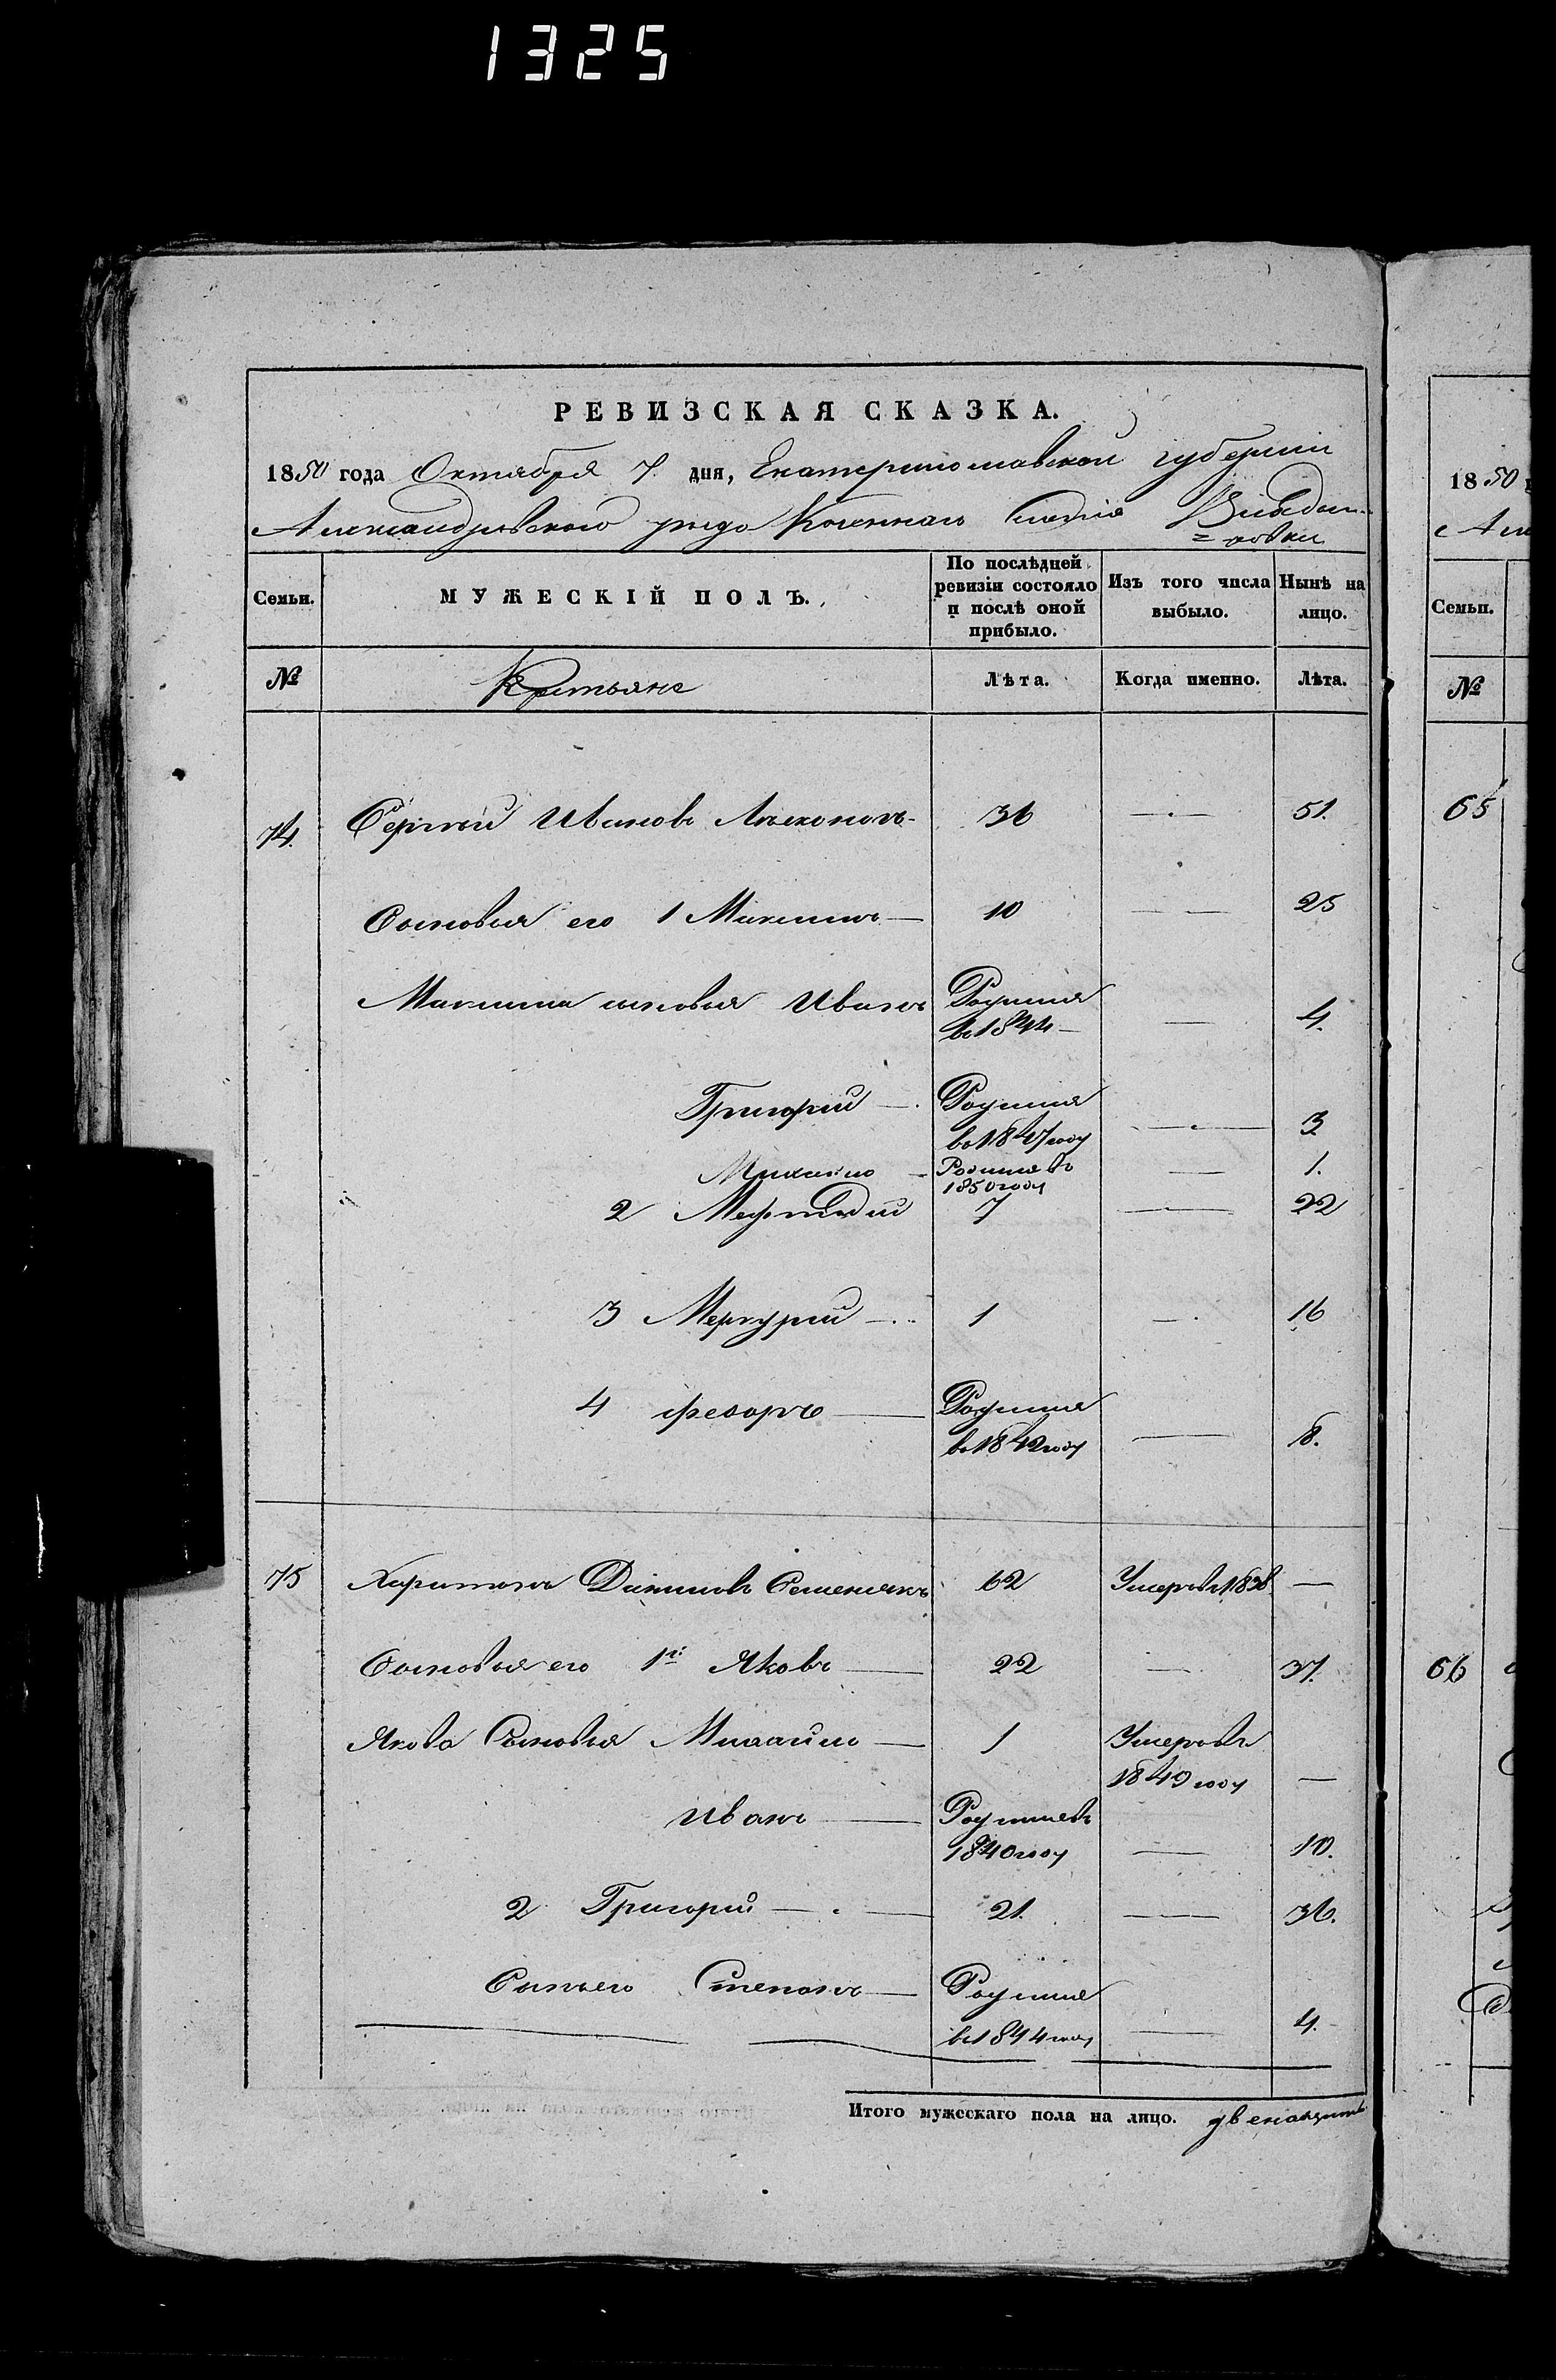 1325
РЕВИЗСКАЯ СКАЗКА.
1850 года Октября 7. дня, Екатеринославской губернии
Александровского уезда Казеннаго
= ковки
Семьи. МУЖЕСКІЙ ПОЛЪ. По послѣдней ревизіи состояло и послѣ оной прибыло. Изъ того числа выбыло. Нынѣ на лицо.
№ Крестьяне Лѣта. Когда именно. Лѣта.
74. Сергѣй Ивановъ 36 — 51.
Сыновья его 1 Максимъ — 10 — 25
Максима сыновья Иванъ Родился в 1844 — — 4.
Григорій — Родился в 1847 году — 3
Михайло — Родился в 1850 году — 1.
2 Мефодій 7 — 22
3 Меркурій — 1 — 16
4 Федоръ — Родился в 1842 году — 8.
75 Харитонъ Даниловъ 62 Умеръ в 1838 —
Сыновья его 1й Яковъ — 22 — 37.
Якова Сыновья Михайло — 1 Умеръ въ 1849 году —
Иванъ — Родился въ 1840 году — 10.
2 Григорій — 21. — 36.
Сынъ его Степанъ — Родился в 1844 году — 4.
Итого мужескаго пола на лицо. двенадцать
1850
Семьи.
№
65
66